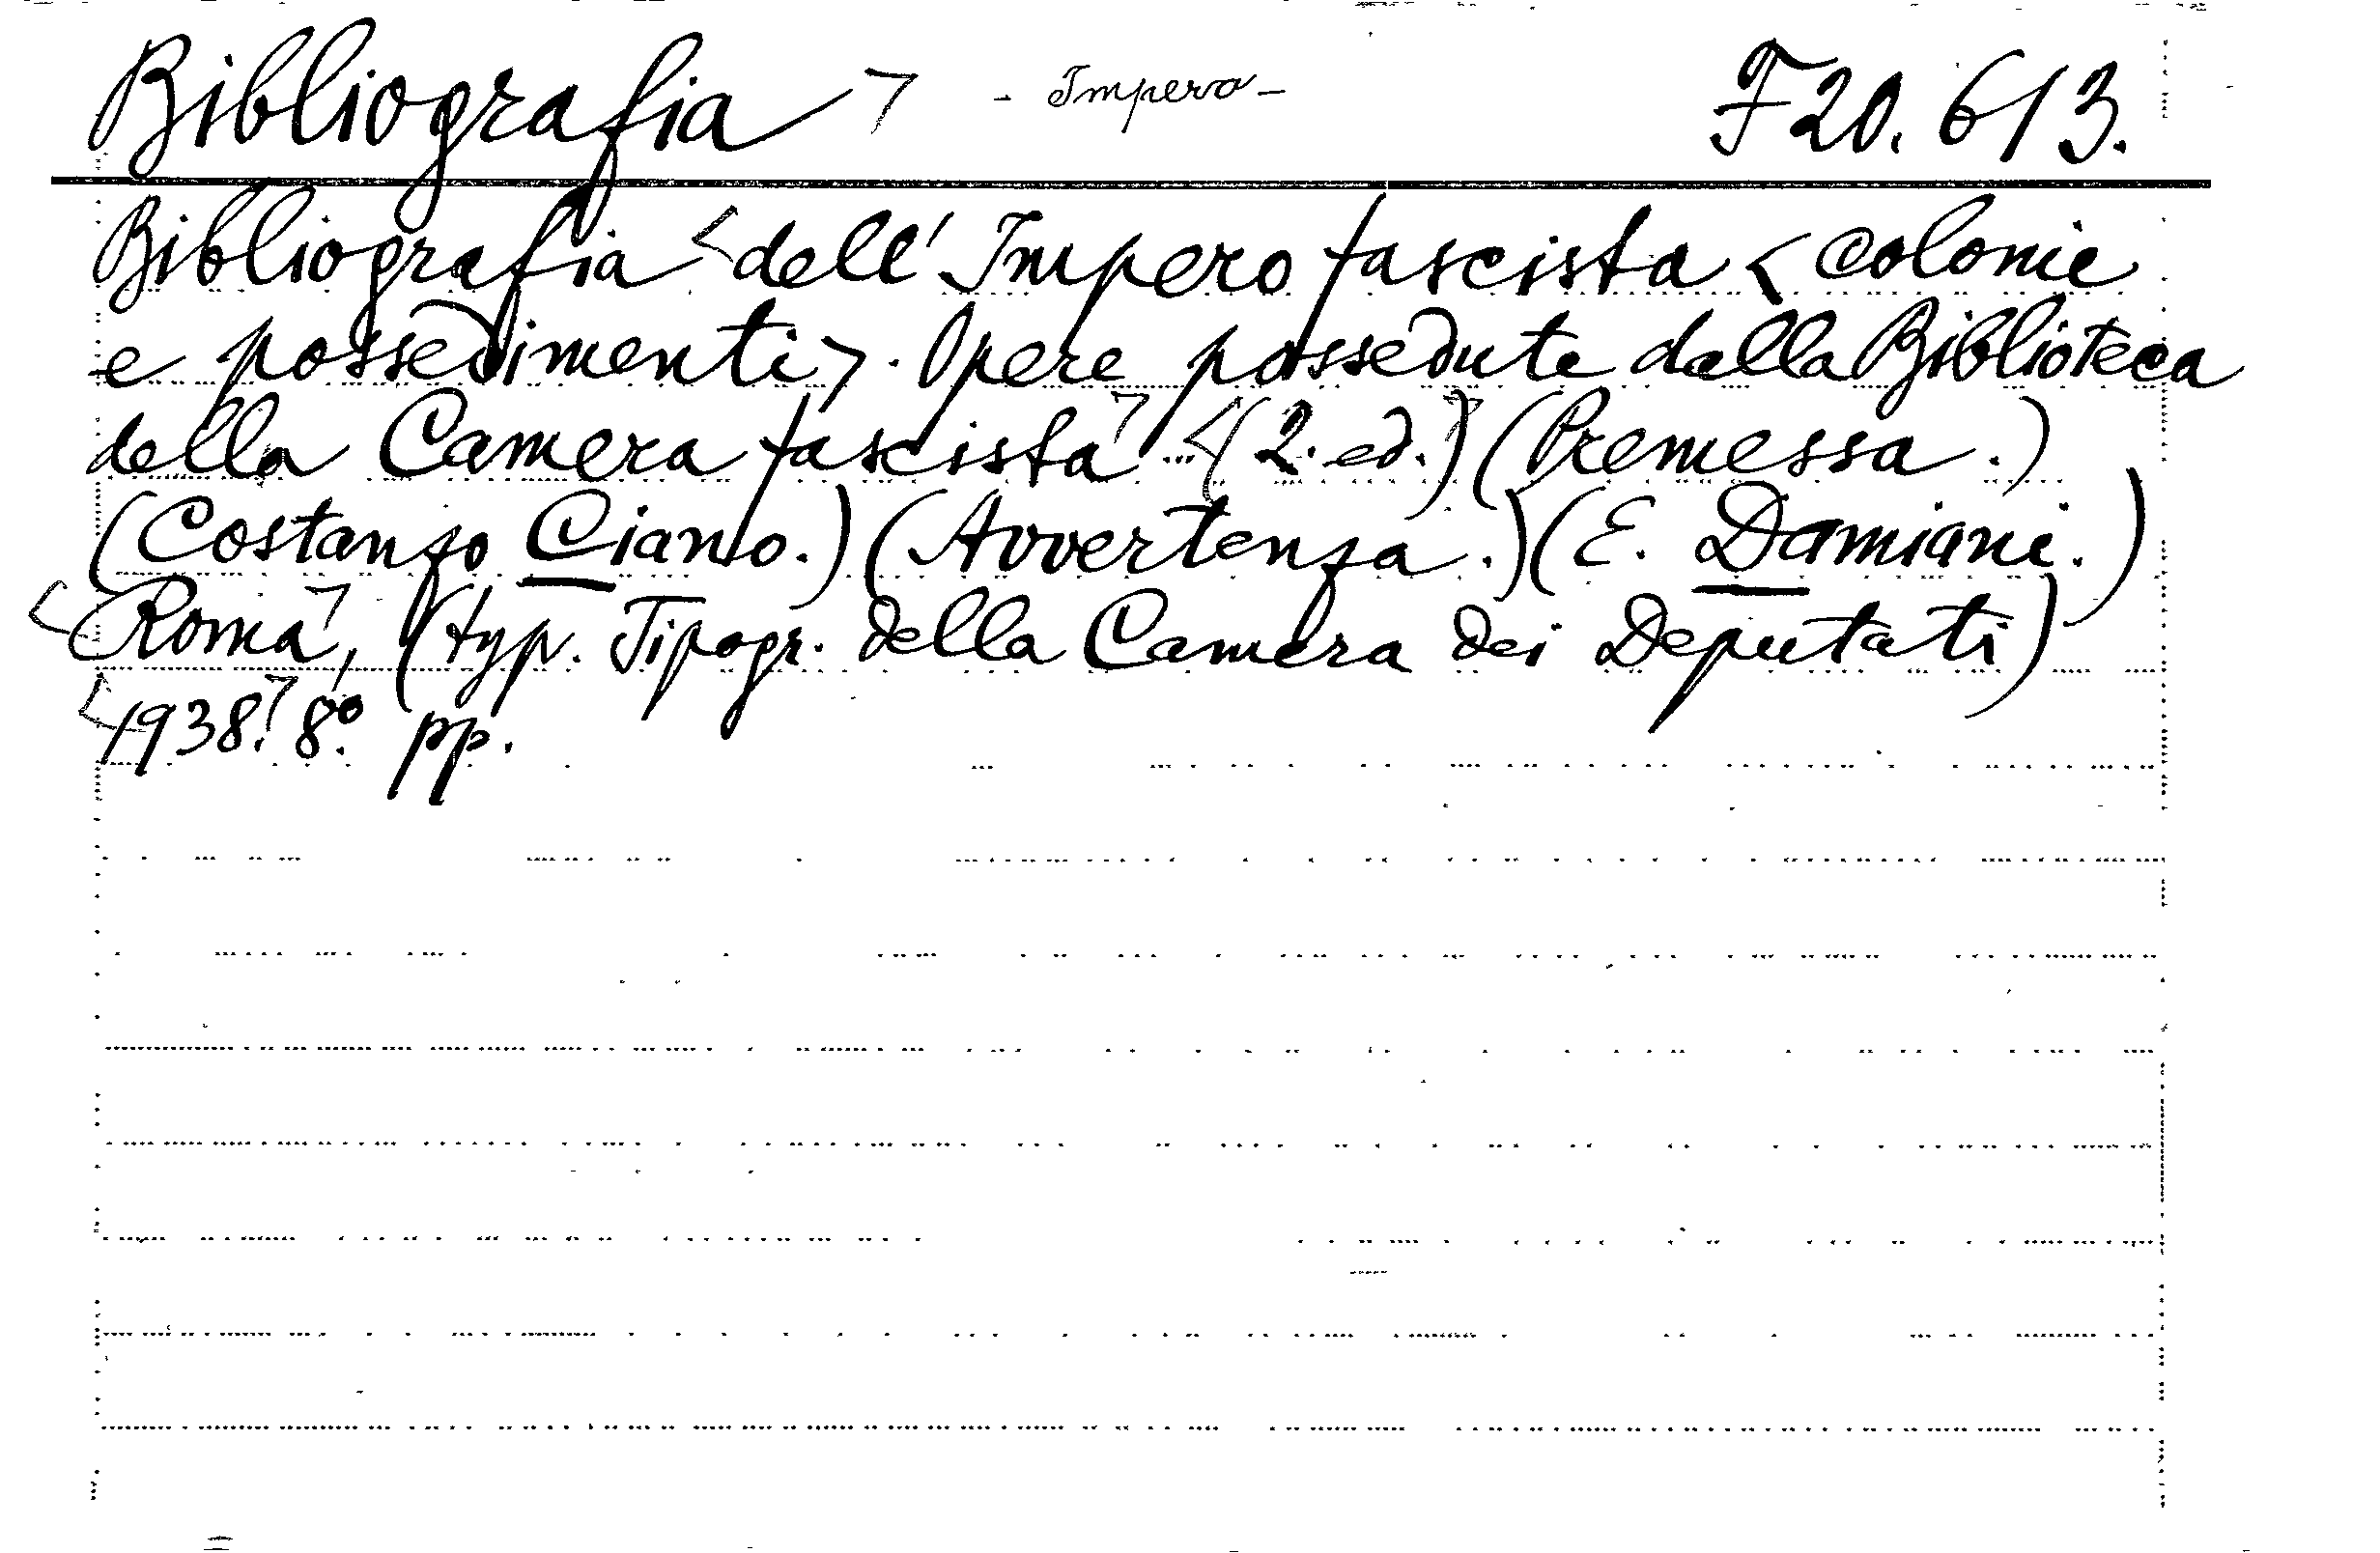 Bibliografia > - Impero - F 20.613.
Bibliografia <dell' Impero fascista <colonie
e possedimenti>. Opere possedute dalla Biblioteca
della Camera fascista> <(2. ed.)> (Premessa.)
(Costanzo Ciano.) (Avvertenza.) (E. Damiani.)
<Roma>, (typ. Tipogr. della Camera dei Deputati)
<1938.> 8º. pp.